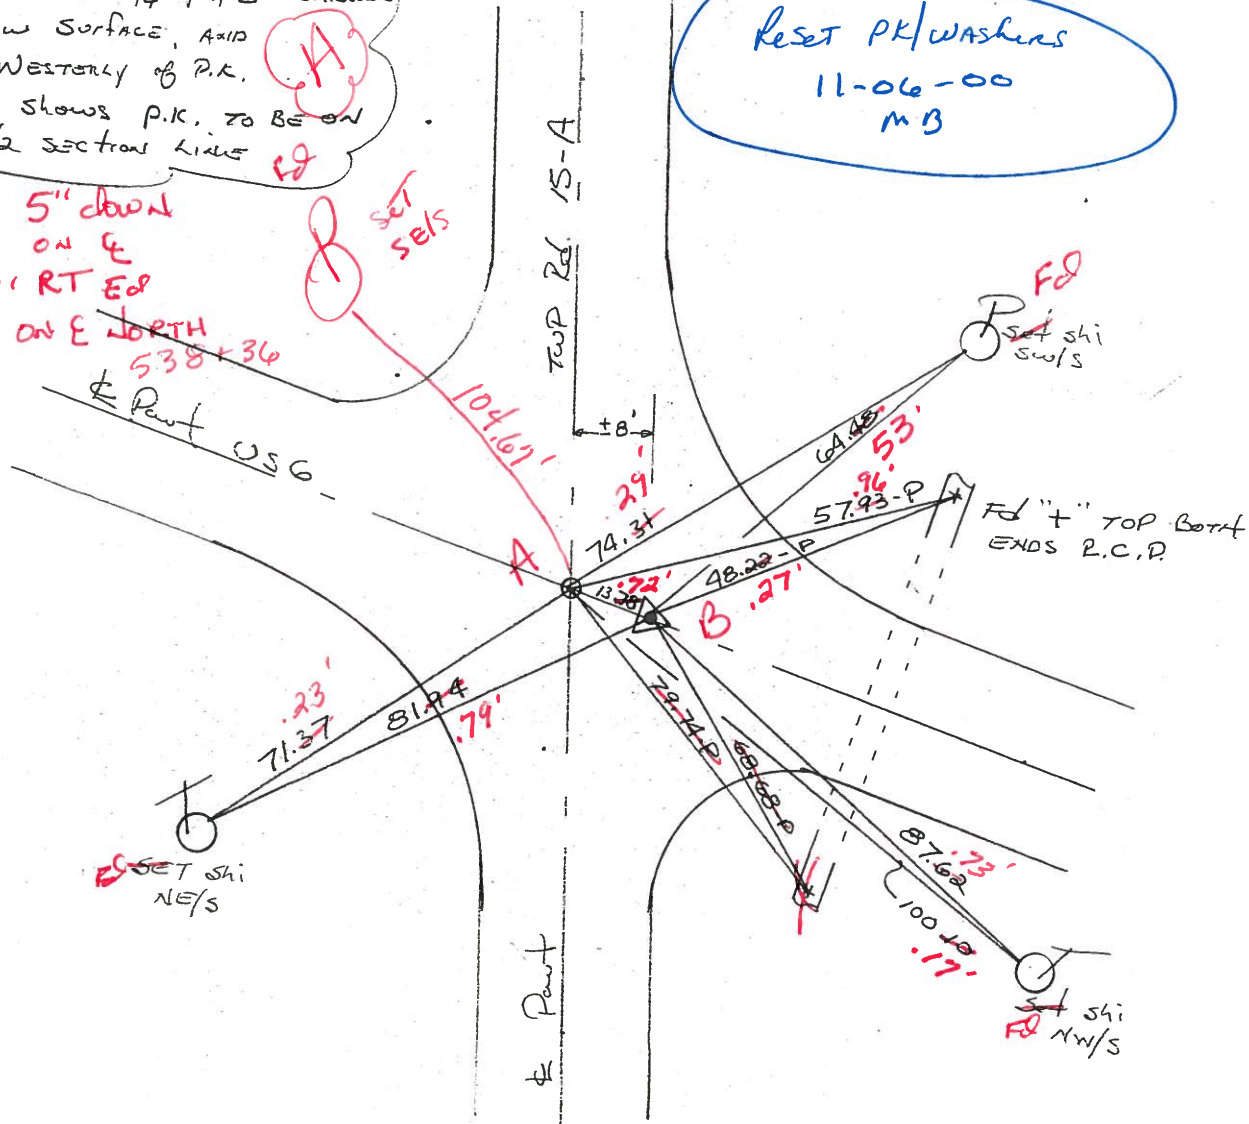 SURFACE, AND
WESTERLY of P.K.
shows P.K. TO BE ON
SECTION LINE
A
Fd
Reset PK/WASHERS
11-06-00
MB
5" down
ON ℄
RT Ed
ON ℄ NORTH
538+36
℄ Pavt US6
set
SE/S
104.67'
TWP Rd. 15-A
±8'
Fd
set shi
SW/S
64.48
53'
29'
74.31
.96'
57.93-P
Fd "+" TOP BOTH
ENDS R.C.P.
A
13.28
.72'
48.22-P
.27'
B
.23'
71.37
81.94
.79'
79.74-P
68.68-P
87.62
.73'
100.10
.17'
Fd SET shi
NE/S
set shi
Fd NW/S
℄ Pavt